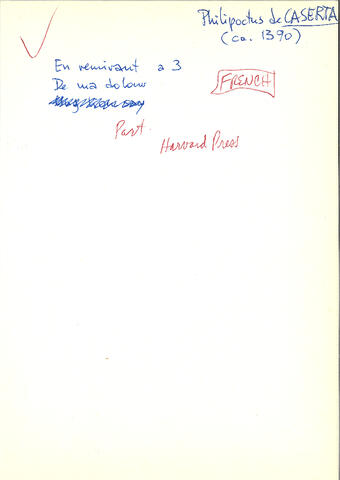 Philipoctus de CASERTA
(ca. 1390)
En remirant a 3
De ma dolour
FRENCH
Part.
Harvard Press